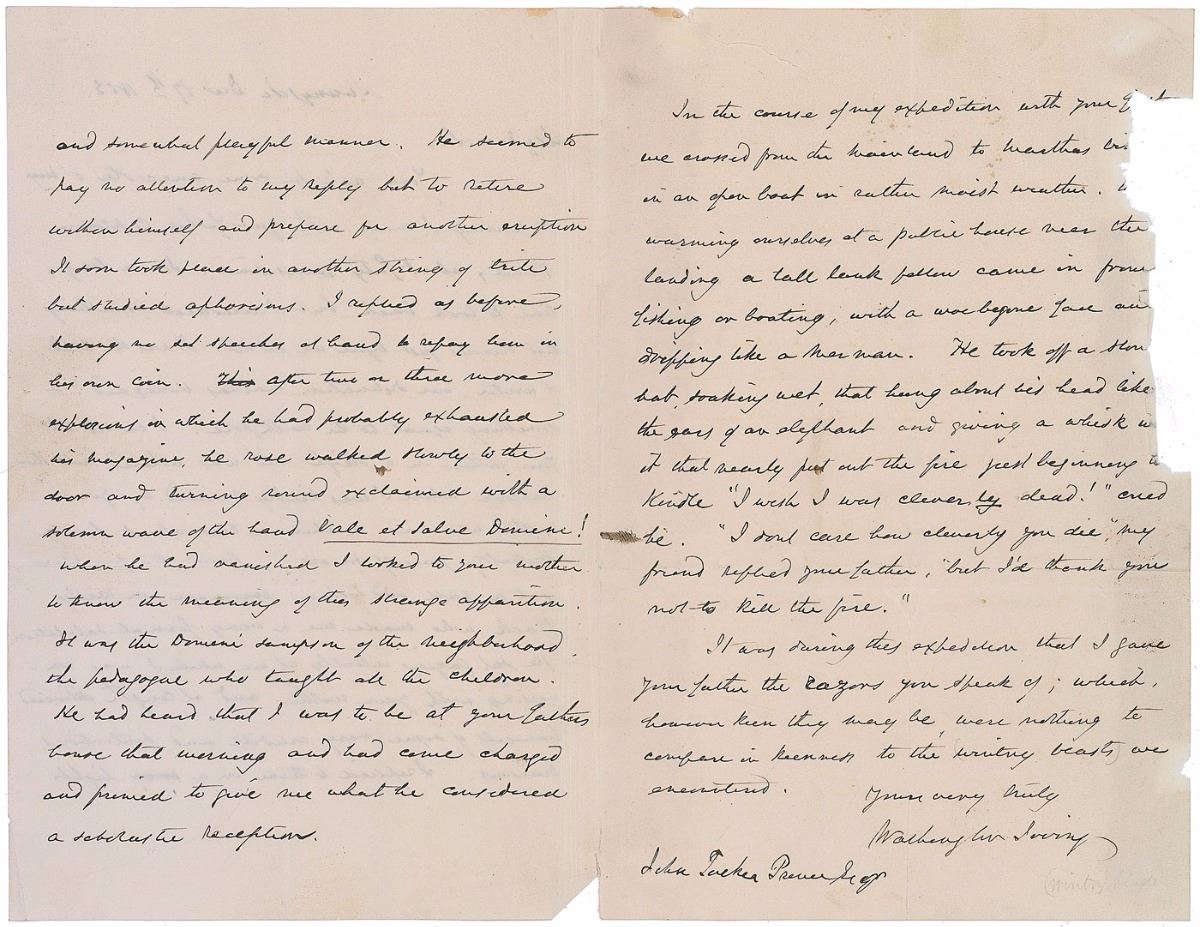 and somewhat playful manner. He seemed to
pay no attention to my reply but to retire
within himself and prepare for another eruption
It soon took place in another string of trite
but studied aphorisms. I replied as before
having no set speeches at hand to repay him in
his own coin. This after two or three more
explosions in which he had probably exhausted
his magazine, he rose walked slowly to the
door and turning round exclaimed with a
solemn wave of the hand Vale et Salve Domine!
when he had vanished I looked to your mother
to know the meaning of this strange apparition.
It was the Domine Sampson of the neighborhood,
the pedagogue who taught all the children.
He had heard that I was to be at your fathers
house that morning and had come charged
and primed to give me what he considered
a scholastic reception.
In the course of my expedition with your
we crossed from the mainland to Marthas
in an open boat in rather moist weather.
warming ourselves at a public house near the
landing a tall lank fellow came in from
fishing or boating, with a woe begone face
dripping like a Merman. He took off a
hat, soaking wet, that hung about his head like
the ears of an elephant and giving a whisk
it that nearly put out the fire just beginning
Kindle "I wish I was cleverly dead!" cried
he. "I dont care how cleverly you die", my
friend replied your father, "but I'd thank you
not to kill the fire."
It was during this expedition that I gave
your father the razors you speak of; which,
however keen they may be, were nothing to
compare in keenness to the wintry blasts we
encountered.
Yours very truly
Washington Irving
John Tucker Esqr